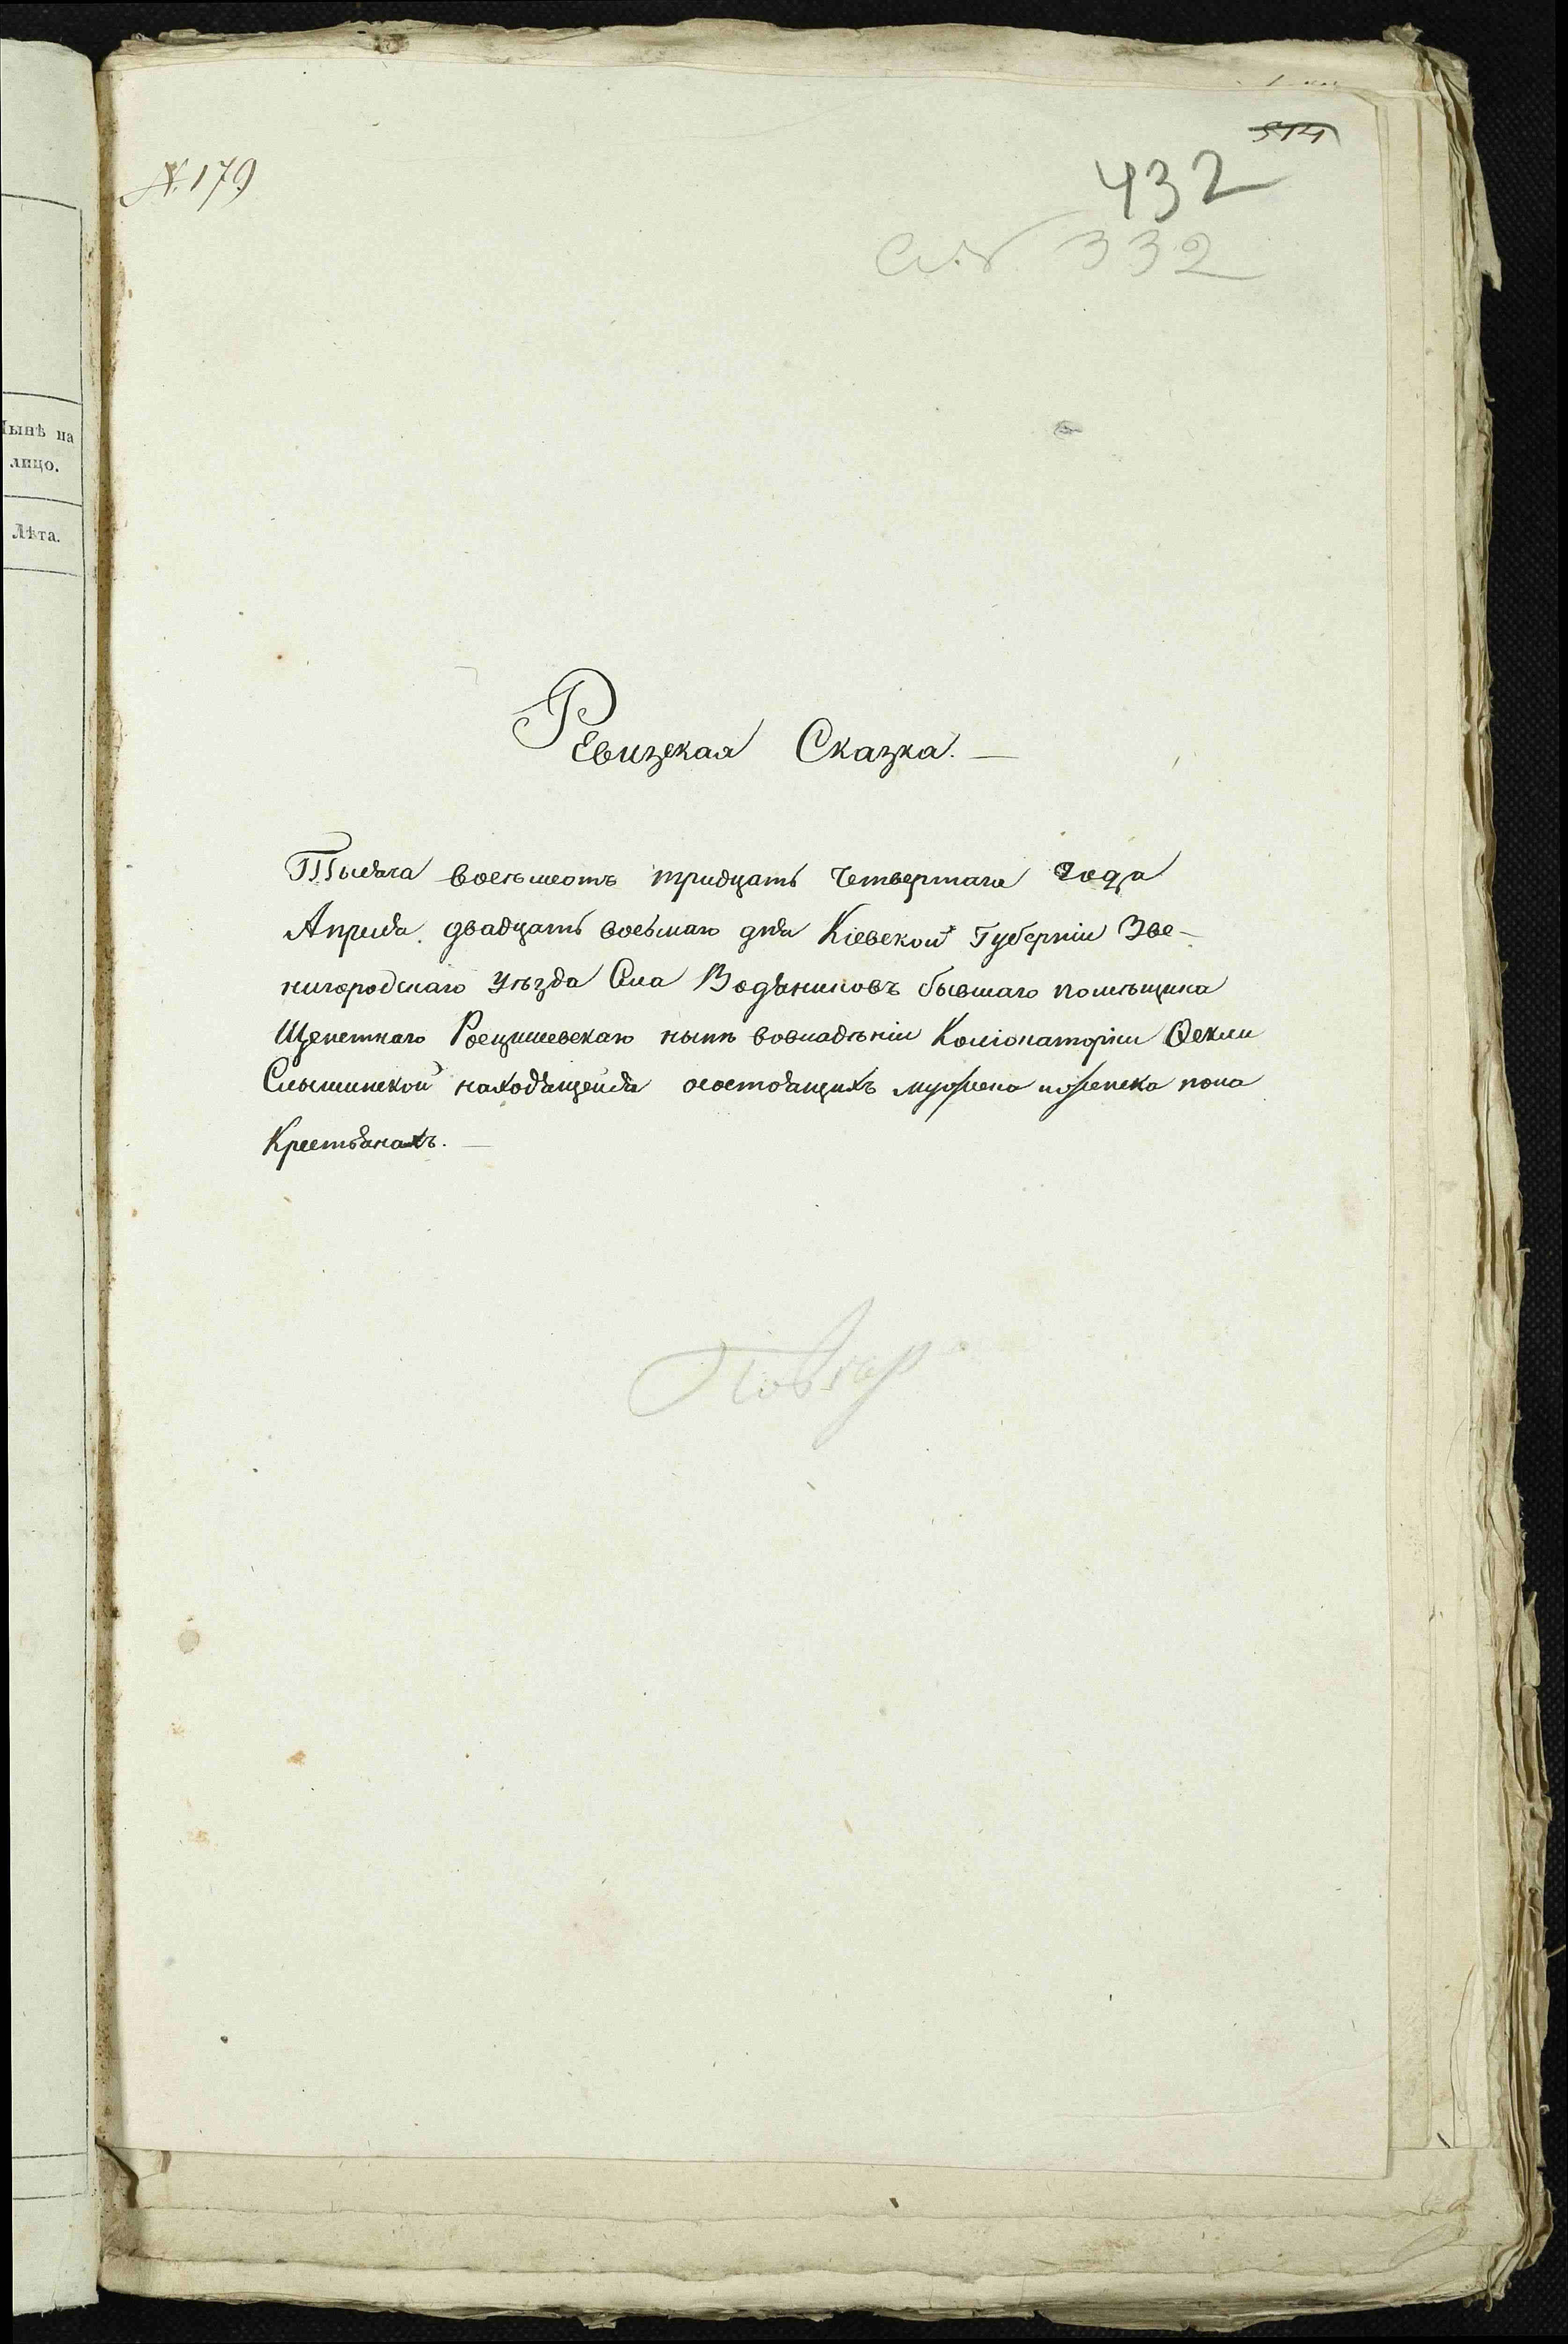 514
№ 179
432
332
Нынѣ на
лицо.
Лѣта.
Ревизская Сказка. —
Тысяча восемьсотъ тридцать четвертаго Года
Апреля двадцать восьмаго дня Кіевской Губерніи Зве-
нигородскаго Уѣзда Села Водяниковъ бывшаго помѣщика
Щепетнаго Росцишевскаго нынѣ вовладѣніи Коліокаторки Феклы
находящейся осостоящихъ мужеска иженска пола
Крестьянахъ. —